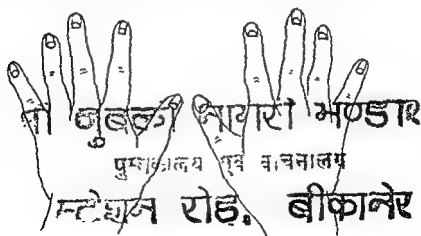 नागरी भण्डार
पुस्तकालय एवं वाचनालय
स्टेशन रोड, बीकानेर